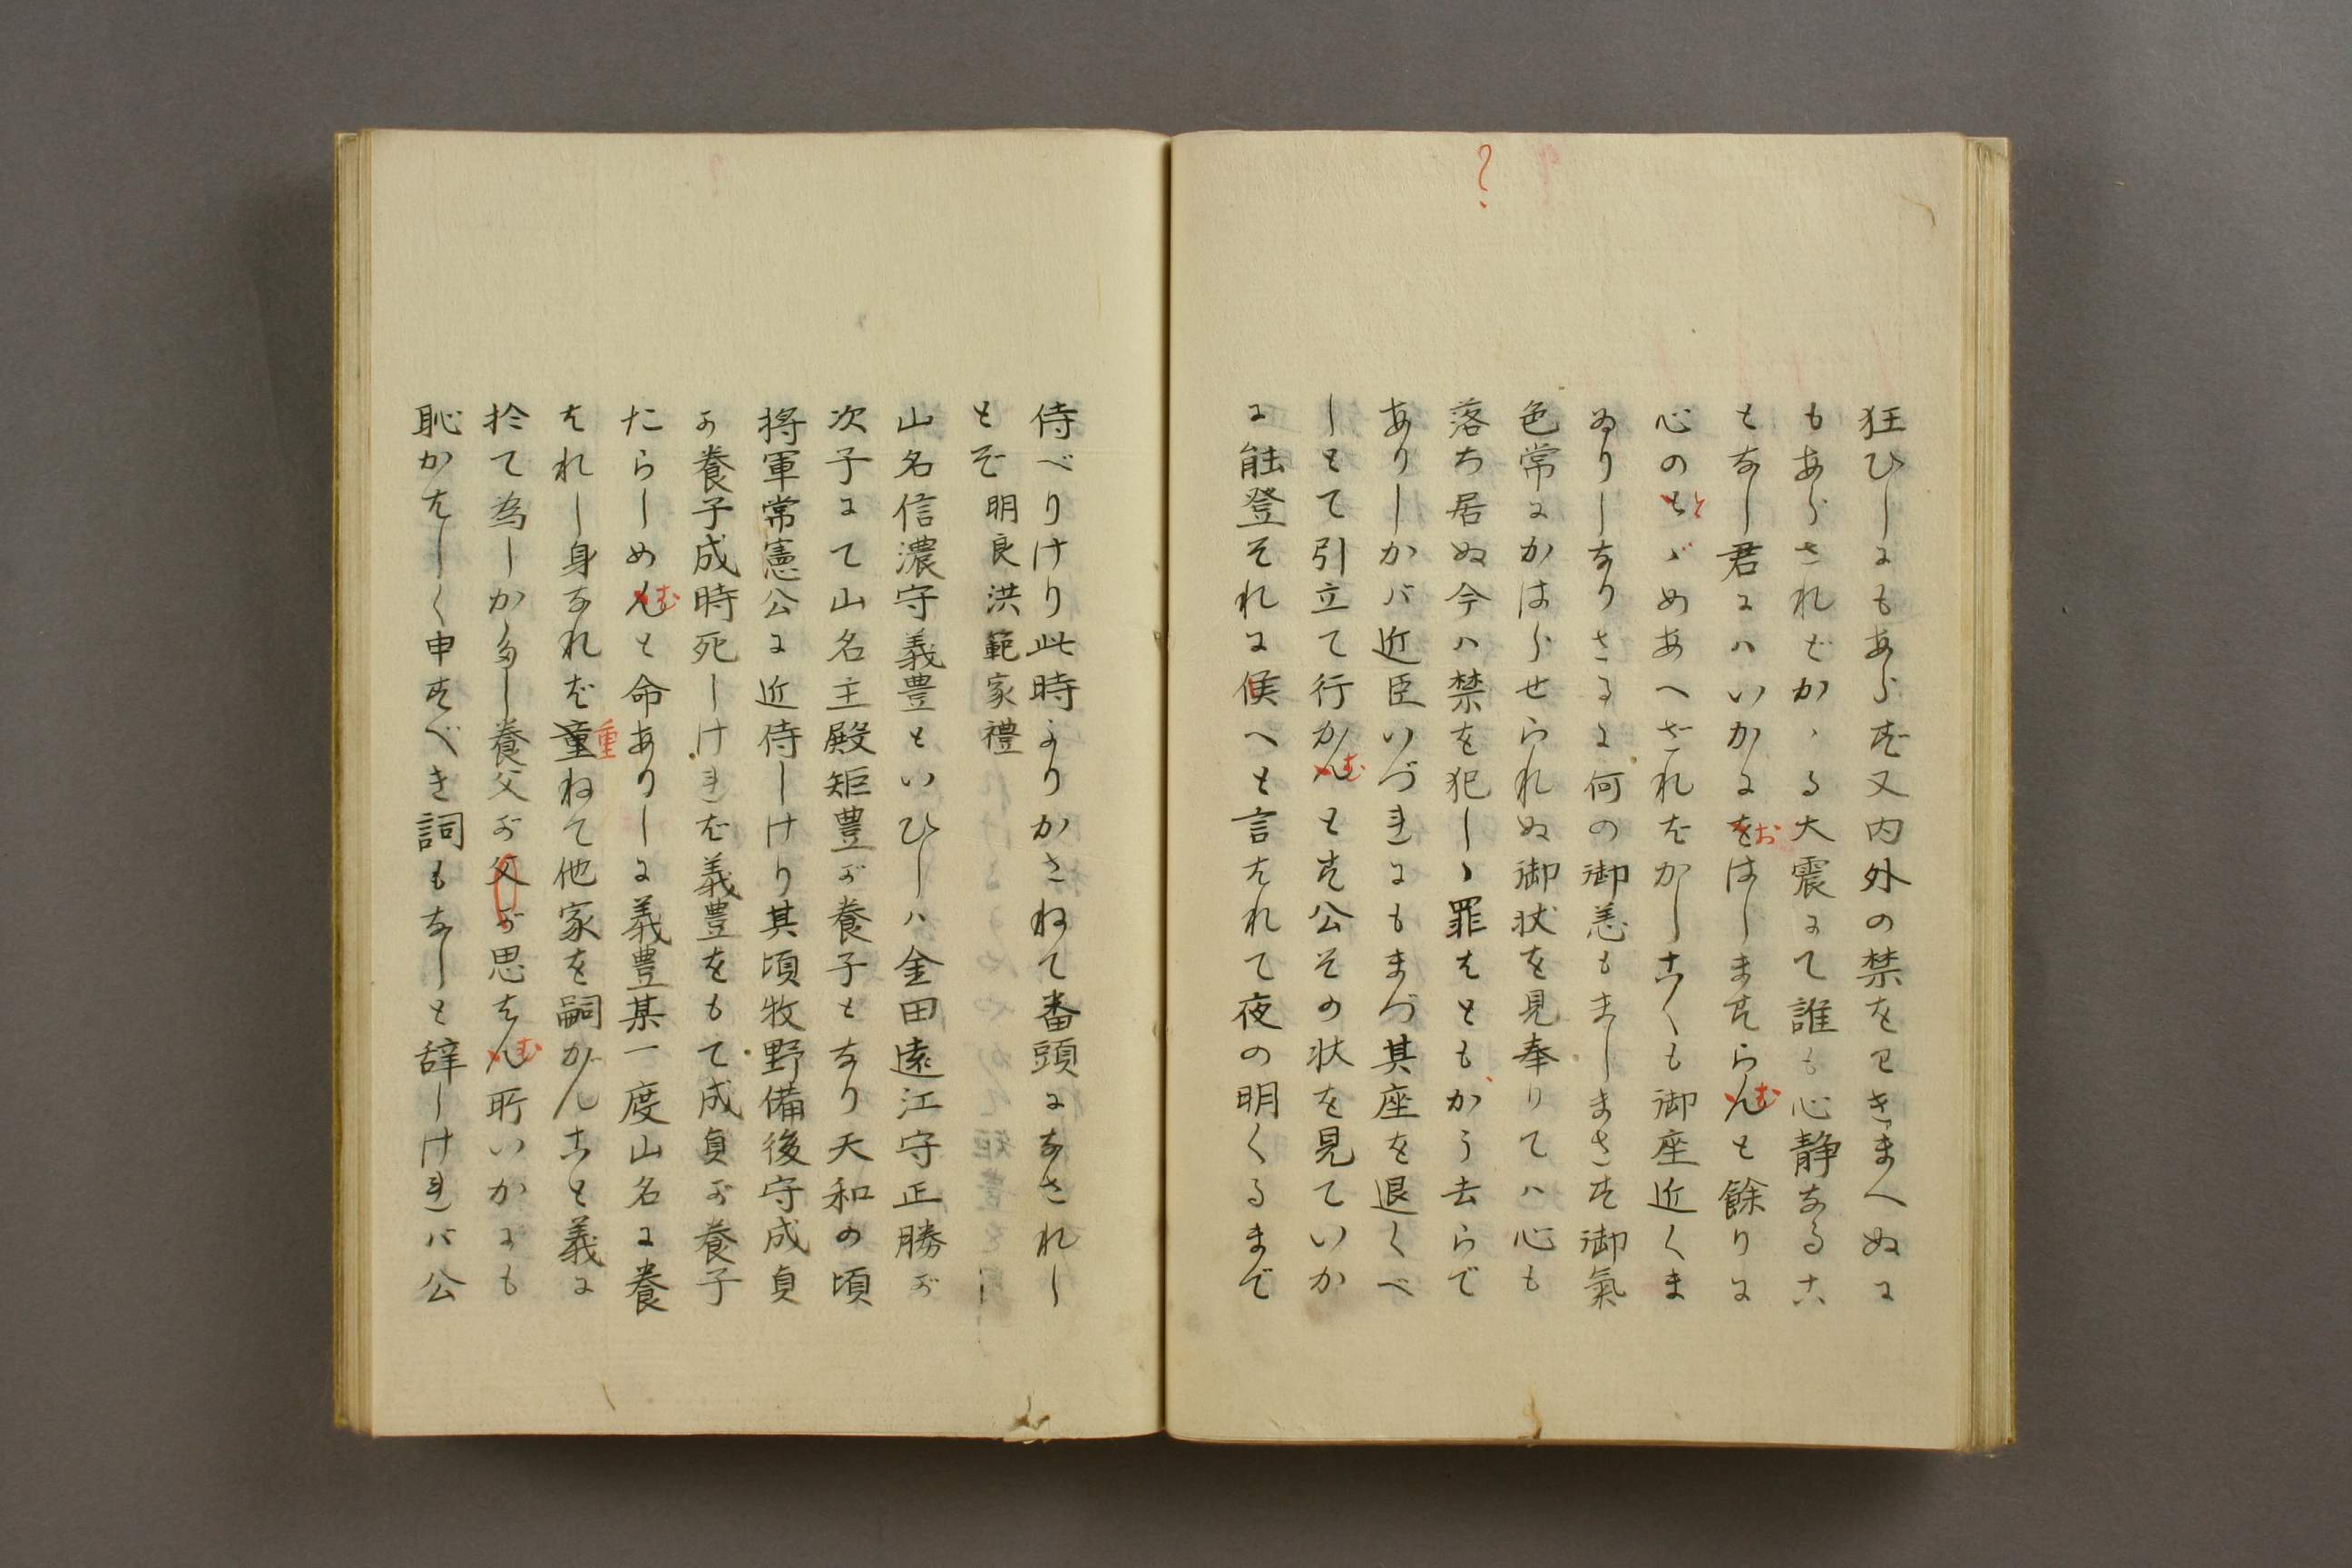 ?
狂ひしにもあらず又内外の禁をわきまへぬに
もあらされどかゝる大震にて誰も心静なるこ
となし君にハいかにをおはしますらんむと餘りに
心のちとゞめあへざればかしこくも御座近くま
ゐりしなりさるに何の御恙もましまさず御氣
色常にかはらせられぬ御状を見奉りてハ心も
落ち居ぬ今ハ禁を犯しゝ罪はともかう去らで
ありしかバ近臣いづれにもまづ其座を退くべ
しとて引立て行かんむとす公その状を見ていか
に能登それに候へと言はれて夜の明くるまで
侍べりけり此時よりかさねて番頭になされし
とぞ 明良洪範家禮
山名信濃守義豊といひしハ金田遠江守正勝が
次子にて山名主殿矩豊が養子となり天和の頃
将軍常憲公に近侍しけり其頃牧野備後守成貞
が養子成時死しければ義豊をもて成貞が養子
たらしめんむと命ありしに義豊某一度山名に養
はれし身なれば童重ねて他家を嗣がんこと義に
於て為しがたし養父が父が思はんむ所いかにも
恥かはしく申すべき詞もなしと辞しけれバ公